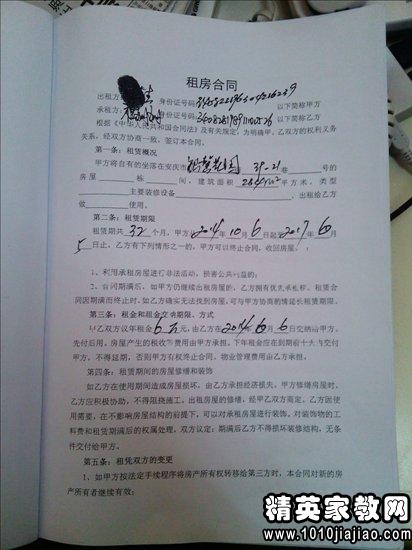 租房合同
出租方: 身份证号码: 以下简称甲方
承租方: 身份证号码: 以下简称乙方
根据《中华人民共和国合同法》及有关规定,为明确甲、乙双方的权利义务
关系,经双方协商一致,签订本合同。
第一条:租赁概况
甲方将自有的坐落在安庆市 39-21 巷 号的
房屋 栋 间,建筑面积 平方米、类型
主要装修设备 ,出租给乙方
做 使用。
第二条:租赁期限
租赁期共32个月,甲方从2014年10月6日起至2017年6月
5日止。乙方有下列情形之一的,甲方可以终止合同,收回房屋。
1、利用承租房屋进行非法活动,损害公共利益的;
2、合同期满后,如甲方仍继续出租房屋的,乙方拥有优先承租权。租赁合
同因期满而终止时,如乙方确实无法找到房屋,可与甲方协商酌情延长租赁期限。
第三条:租金和租金交纳期限、方式
甲乙双方议年租金6万元,由乙方在2014年10月6日交纳给甲方。
先付后用,房屋产生的税收等费用由甲方承担。下年租金应在到期前十天内交付
甲方,不得延期,否则甲方有权终止合同。物业管理费用由乙方承担。
第四条:租赁期间的房屋修缮和装饰
如乙方在使用期间造成房屋损坏,由乙方承担经济损失。甲方修缮房屋时,
乙方应积极协助,不得阻挠施工。出租房屋的修缮,经甲乙双方商定。乙方因使
用需要,在不影响房屋结构的前提下,可以对承租房屋进行装饰。对装饰物的工
料费和租赁期满后的权属处理,双方议定:期满后乙方不得损坏装修结构,无条
件交付给甲方。
第五条:租凭双方的变更
1、如甲方按法定手续程序将房产所有权转移给第三方时,本合同对新的房
产所有者继续有效;
精英家教网
www.1010jiajiao.com